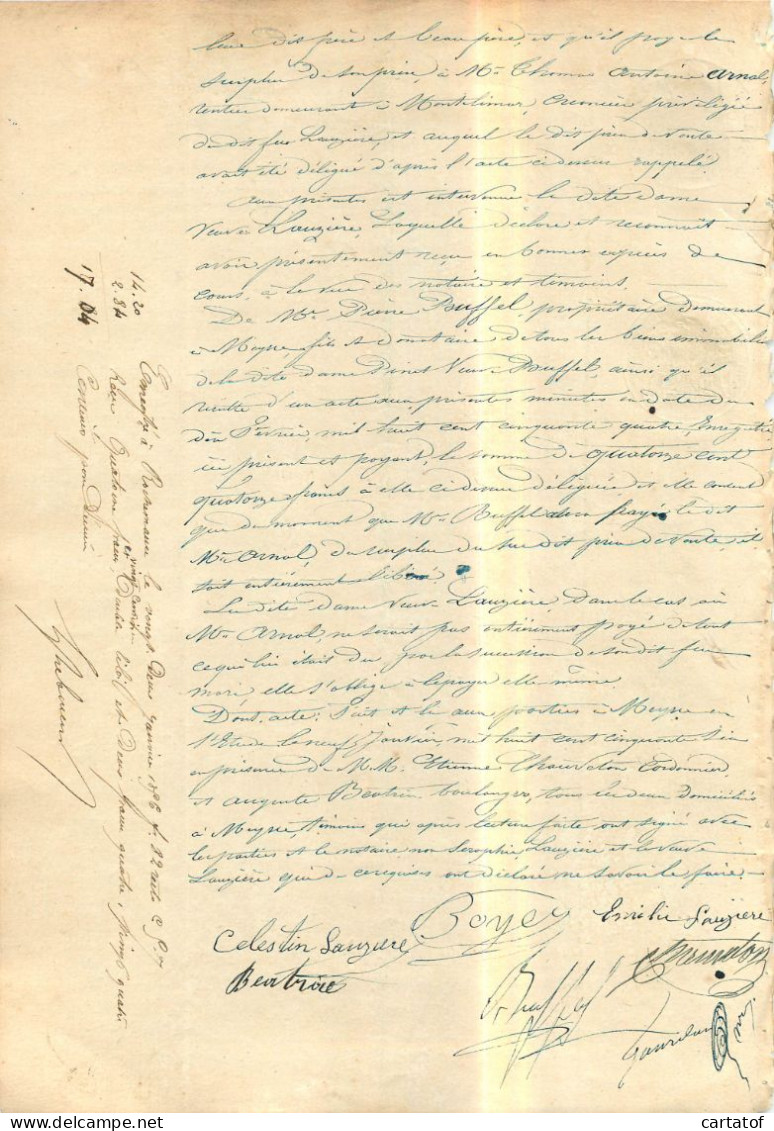 leur dit père et beau père, et qu'il paye le
surplus de son prix à Mr Thomas Antoine Arnal,
rentier demeurant à Montélimar, créancier privilégié
du dit feu Lauzière, et auquel le dit prix de vente
avait été délégué d'après l'acte ci dessus rappelé.
aux présentes est intervenue la dite dame
veuve Lauzière, laquelle déclare et reconnait
avoir présentement reçu en bonnes espèces de
cours, à la vue des notaire et témoins.
De Mr Pierre Buffel, propriétaire demeurant
à Meyne, fils et donataire de tous les biens immobiliers
de la dite dame Pinet Veuve Buffel, ainsi qu'il
résulte d'un acte aux présentes minutes en date du
dix Février, mil huit cent cinquante quatre, Enregistré
ici présent et payant, la somme de quatorze cent
quatorze francs à elle ci dessus déléguée et elle consent
que du moment que Mr Buffel aura payé le dit
Mr Arnal, du surplus du sus dit prix de vente, il
soit entièrement libéré
La dite dame veuve Lauzière, dans le cas où
Mr Arnal, ne serait pas entièrement payé de tout
ce qu'il lui était du par la succession de son dit feu
mari elle s'oblige à le payer elle même.
Dont acte: Fait et lu aux parties à Meyne en
l'Etude le neuf Janvier, mil huit cent cinquante six
en présence de M.M. Etienne Chauvaton Cordonnier
et auguste Beatrix boulanger, tous les deux Domiciliés
à Meyne, témoins qui après lecture faite ont signé avec
les parties et le notaire non Seraphie Lauzière et la veuve
Lauzière qui de ce requises ont déclaré ne savoir le faire.
Boyer
Emilie Lauziere
Celestin Lauziere
Beatrix
Buffel
14. 20
2. 84
17. 04
Enregistré à le vingt deux janvier 1856 fo. 82 recto c
Reçu quatorze francs vingt centimes et deux francs quatre vingt quatre
Centimes pour Décime